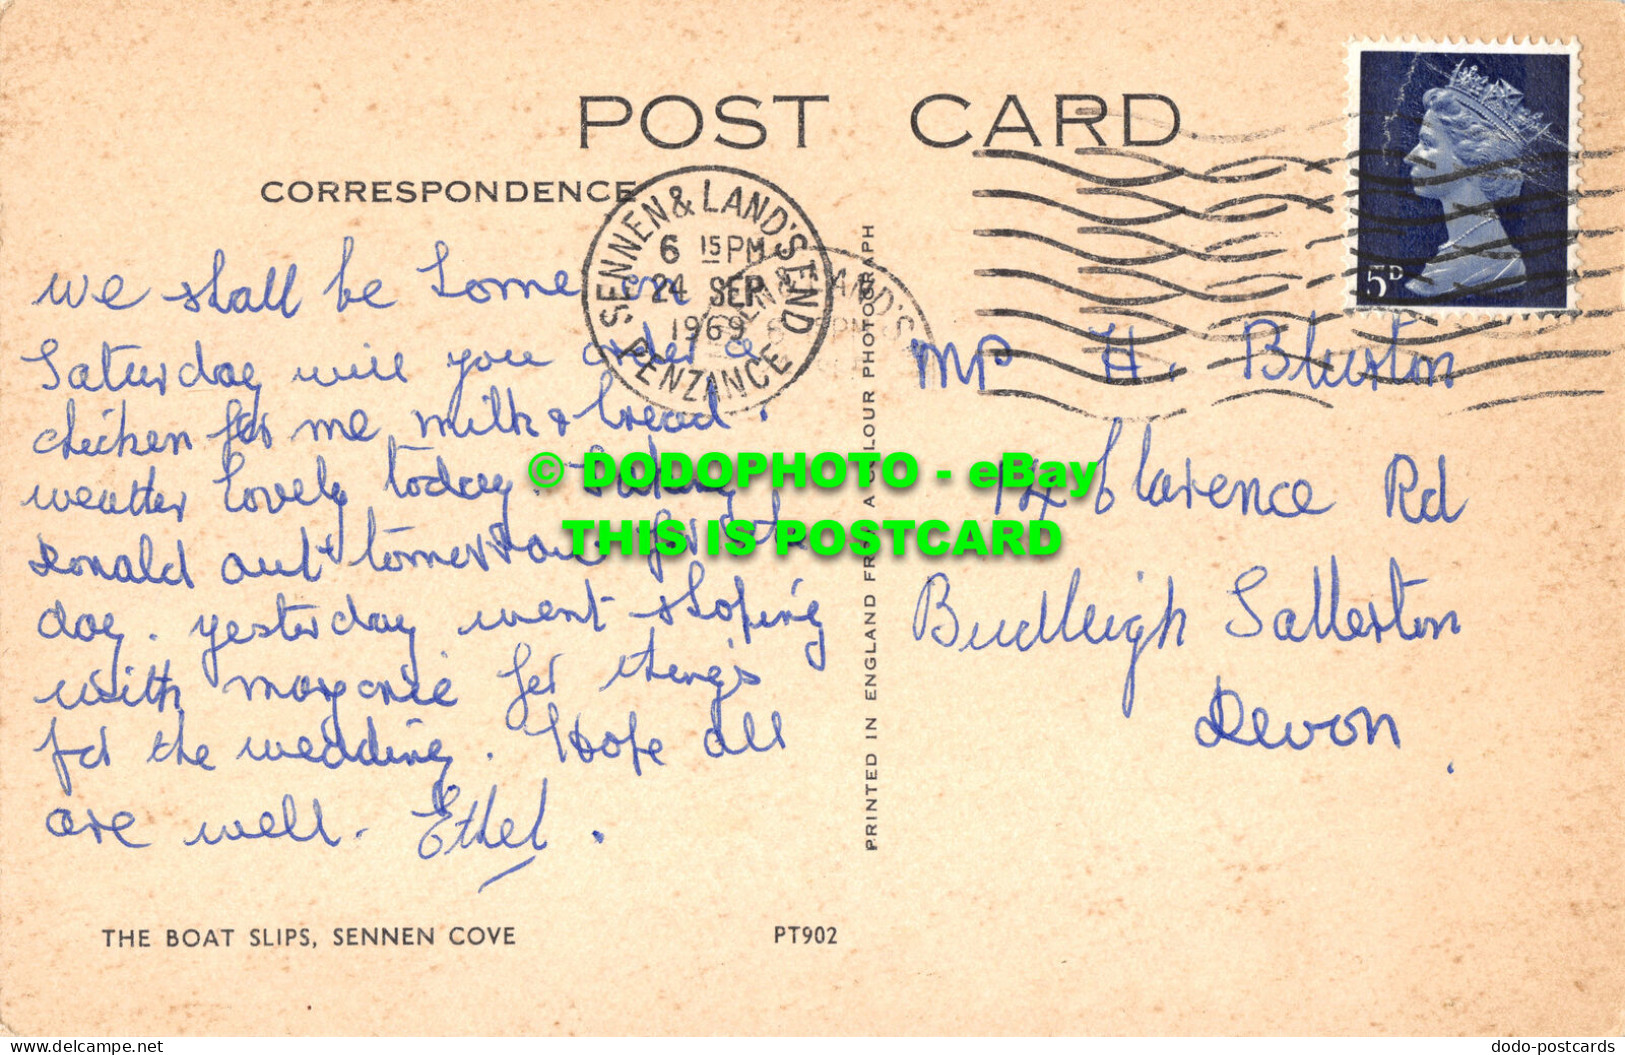 POST CARD
CORRESPONDENCE
SENNEN & LAND'S END
6 15 PM
24 SEP
1969
PENZANCE
5D
we shall be home on
Saturday will you order a
chicken for me milk & bread.
weather lovely today. Taking
Ronald out tomorrow for the
day. yesterday went shoping
with marjorie for thing's
for the wedding. Hope all
are well. Ethel.
Mr H.
14 Clarence Rd
Budleigh Salterton
Devon.
PRINTED IN ENGLAND FROM A COLOUR PHOTOGRAPH
THE BOAT SLIPS, SENNEN COVE
PT902
© DODOPHOTO - eBay
THIS IS POSTCARD
www.delcampe.net
dodo-postcards